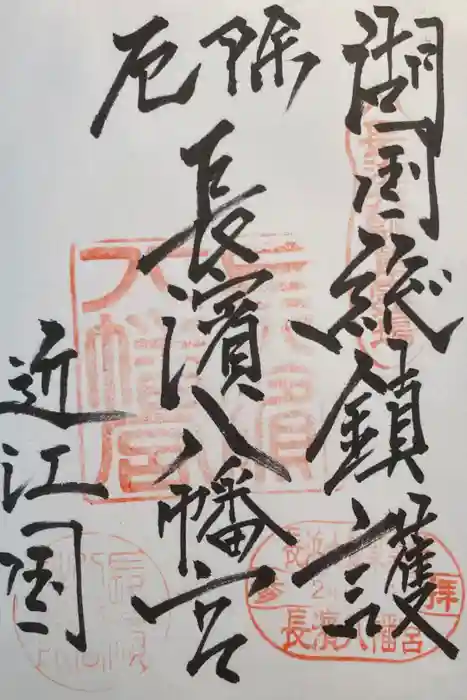 湖国総鎮護
除厄
長濱八幡宮
近江国
長濱八幡宮
拝
長濱八幡宮